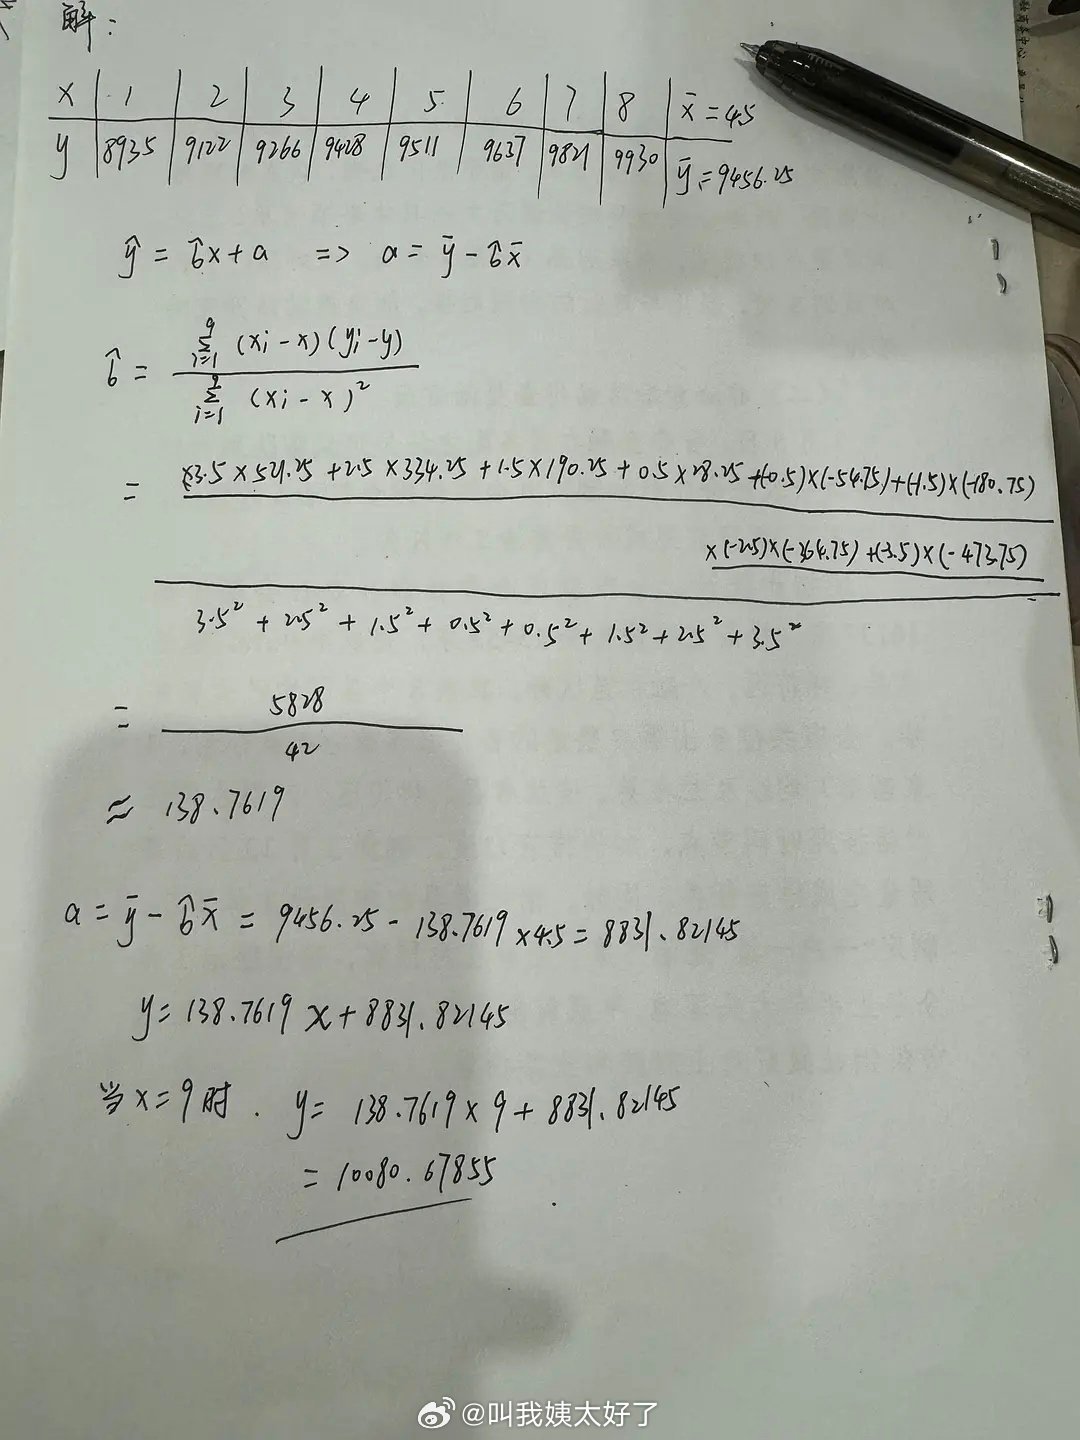 解：
x 1 2 3 4 5 6 7 8 x̄=4.5
y 8935 9122 9266 9428 9511 9637 9821 9930 ȳ=9456.25
ŷ = b̂x+a => a= ȳ-b̂x̄
b̂ = \frac{\sum_{i=1}^{9} (xi-x)(yi-y)}{\sum_{i=1}^{9} (xi-x)^2}
= 3.5×521.25+2.5×334.25+1.5×190.25+0.5×28.25+(-0.5)×(-54.75)+(-1.5)×(-180.75)
×(-2.5)×(-364.75)+(-3.5)×(-473.75)
3.5²+2.5²+1.5²+0.5²+0.5²+1.5²+2.5²+3.5²
= \frac{5828}{42}
≈ 138.7619
a=ȳ-b̂x̄ = 9456.25-138.7619×4.5=8831.82145
y=138.7619x+8831.82145
当x=9时. y= 138.7619×9+8831.82145
=10080.67855
@叫我姨太好了